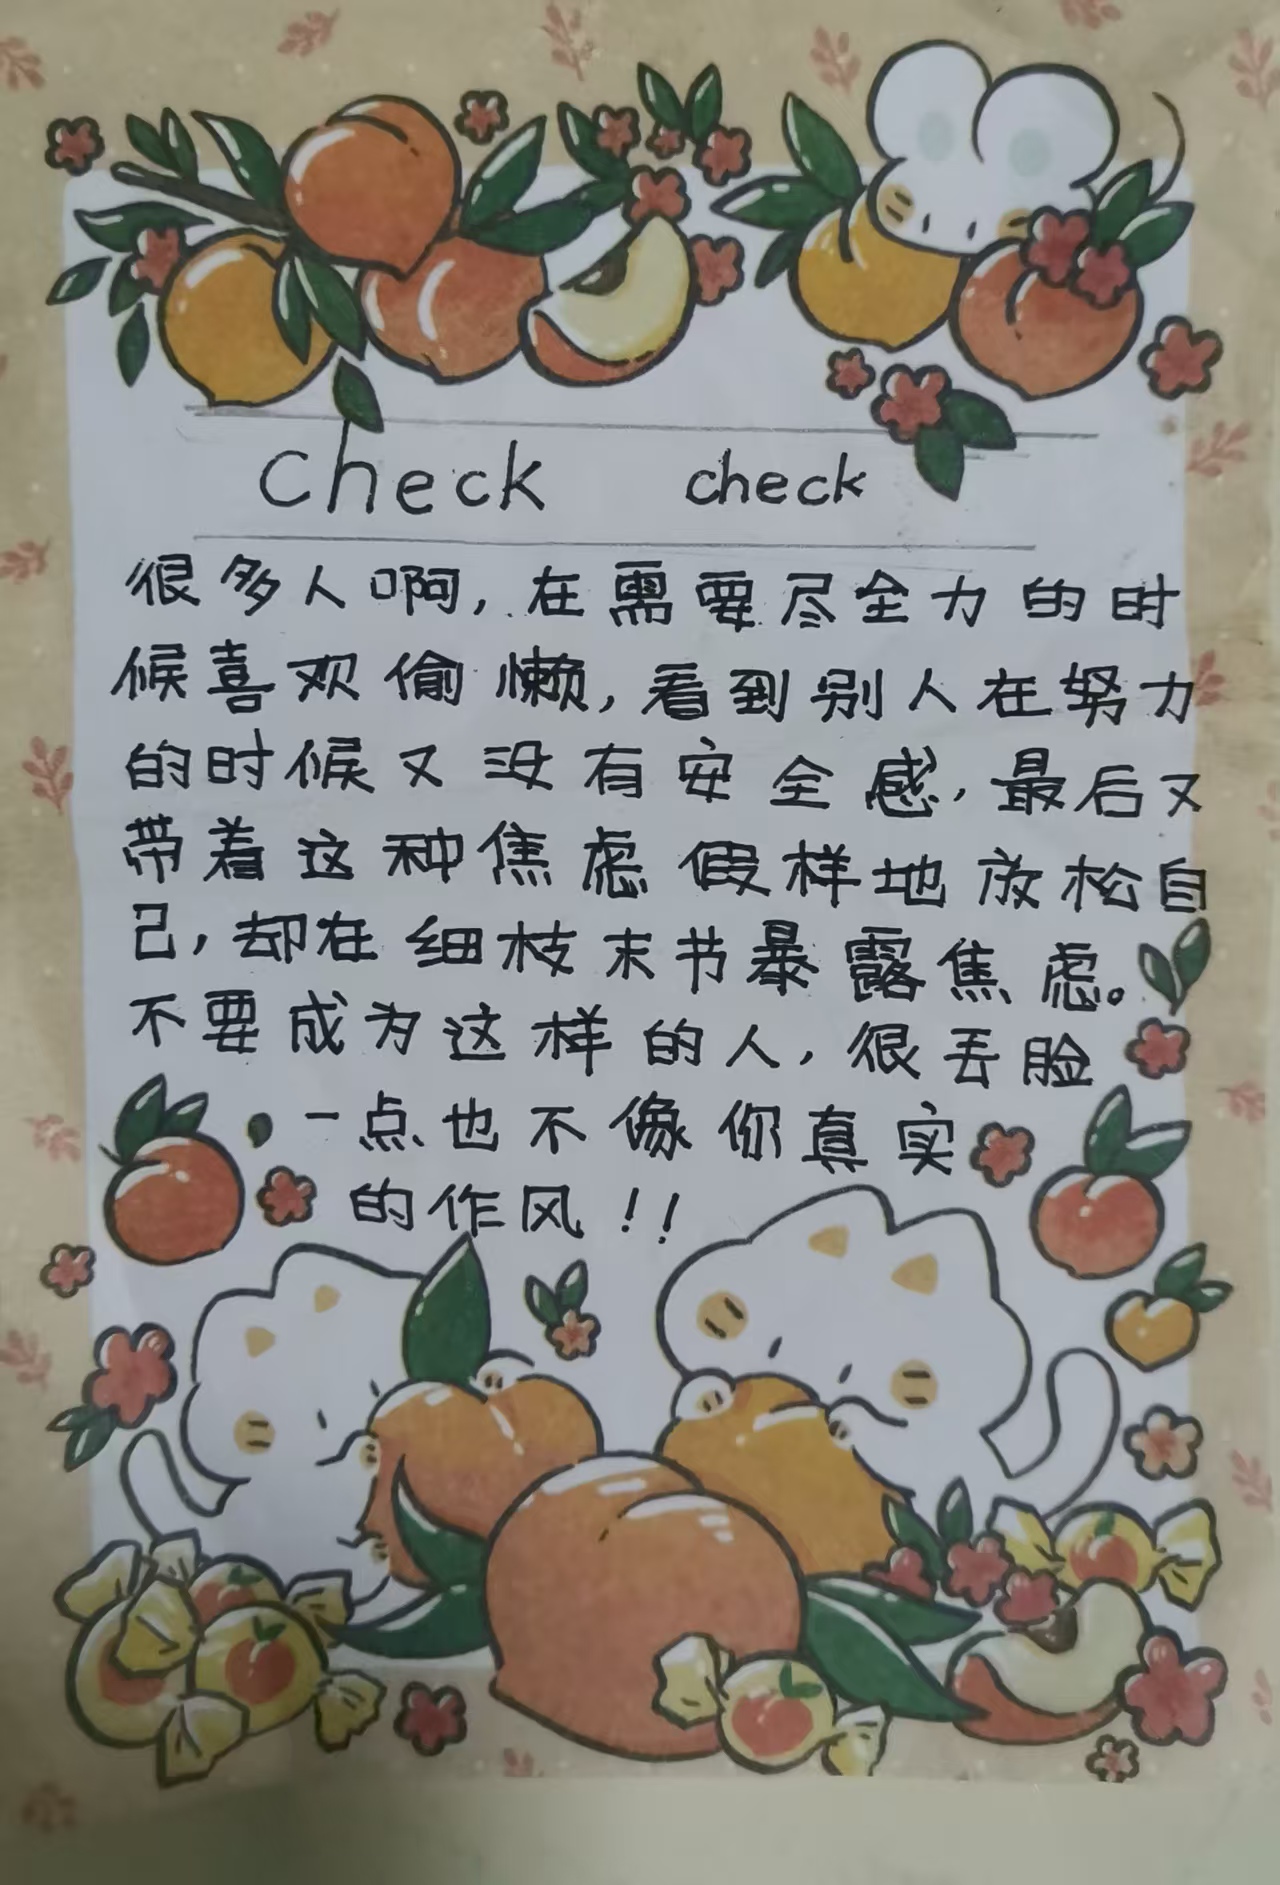 check check
很多人啊,在需要尽全力的时
候喜欢偷懒,看到别人在努力
的时候又没有安全感,最后又
带着这种焦虑假样地放松自
己,却在细枝末节暴露焦虑。
不要成为这样的人,很丢脸
一点也不像你真实
的作风!!